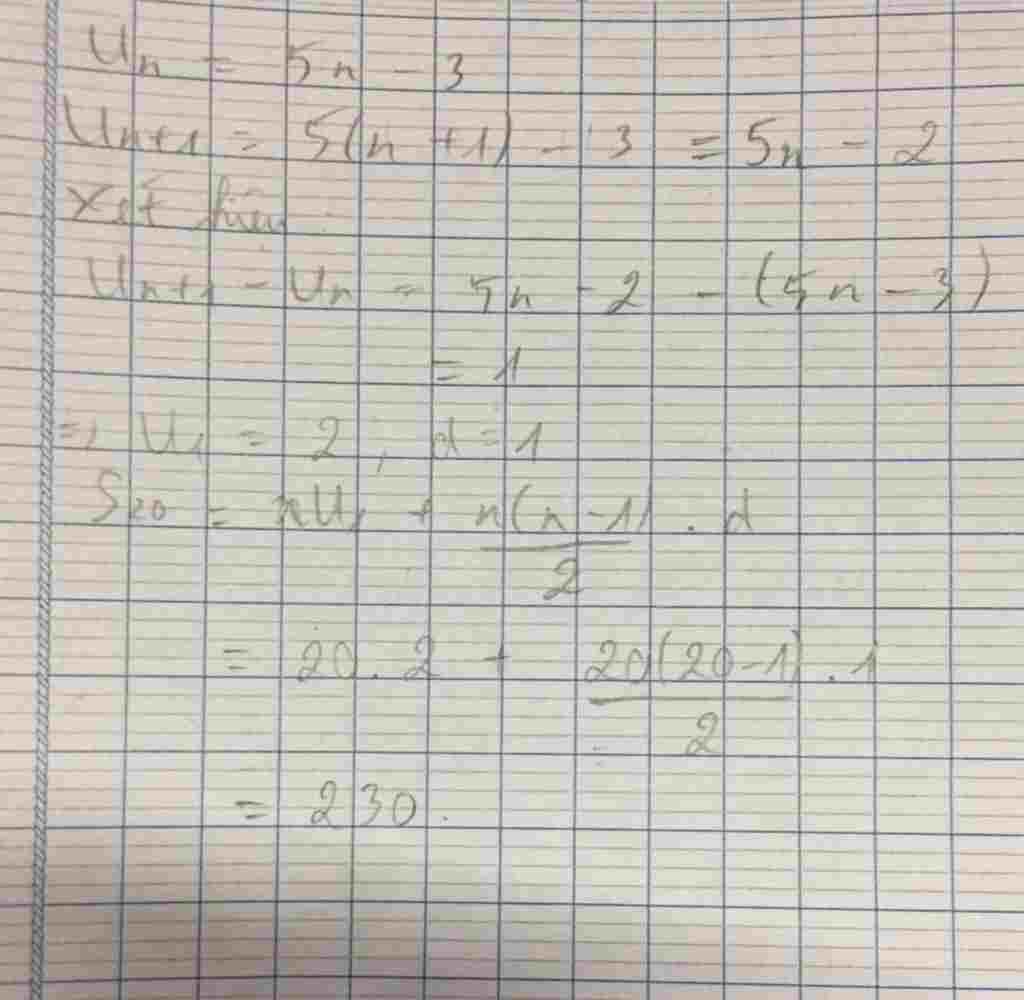 Un = 5n - 3
Un+1 = 5(n+1) - 3 = 5n - 2
Xét hiệu
Un+1 - Un = 5n - 2 - (5n - 3)
= 1
=> U1 = 2, d = 1
S20 = nU1 + n(n-1)/2 . d
= 20.2 + 20(20-1)/2 . 1
= 230.